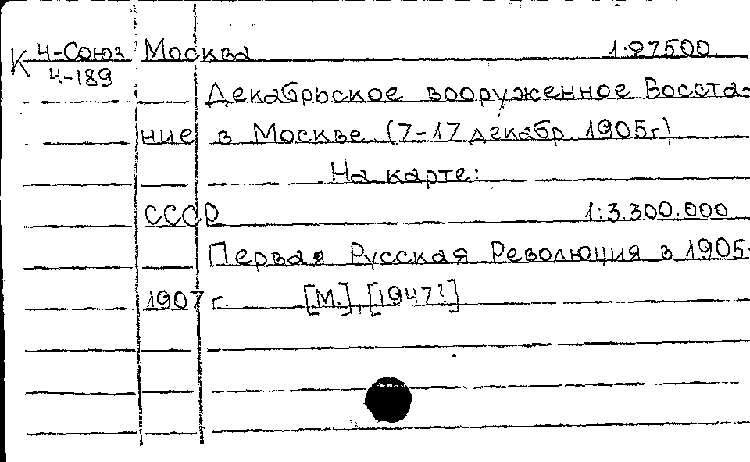 К 4-Союз Москва 1:87500.
4-189
Декабрьское вооруженное Восста-
ние в Москве (7-17 декабр 1905г)
На карте:
СССР 1:3.300.000
Первая Русская Революция в 1905-
1907 г. [М.], [1947?]